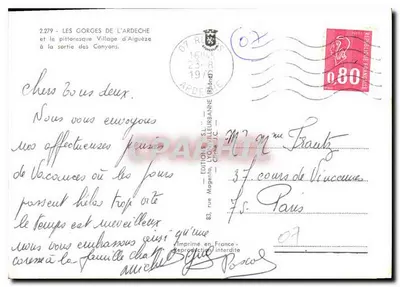 2.2/9 - LES GORGES DE L'ARDECHE
et le pittoresque Village d'Aiguèze
à la sortie des Canyons.
07
ARDECHE
0,80
Chers tous deux.
Nous vous envoyons
nos affectueuses pensées
de Vacances où les jours
passent hélas trop vite
le temps est merveilleux
nous vous embrassons ainsi qu'une
caresse à la famille
Michel
Pascal
83, rue Magenta, VILLEURBANNE (Rhône)
Imprimé en France -
Reproduction interdite
Mr Mme Frantz
37 cours de Vincennes
75 Paris